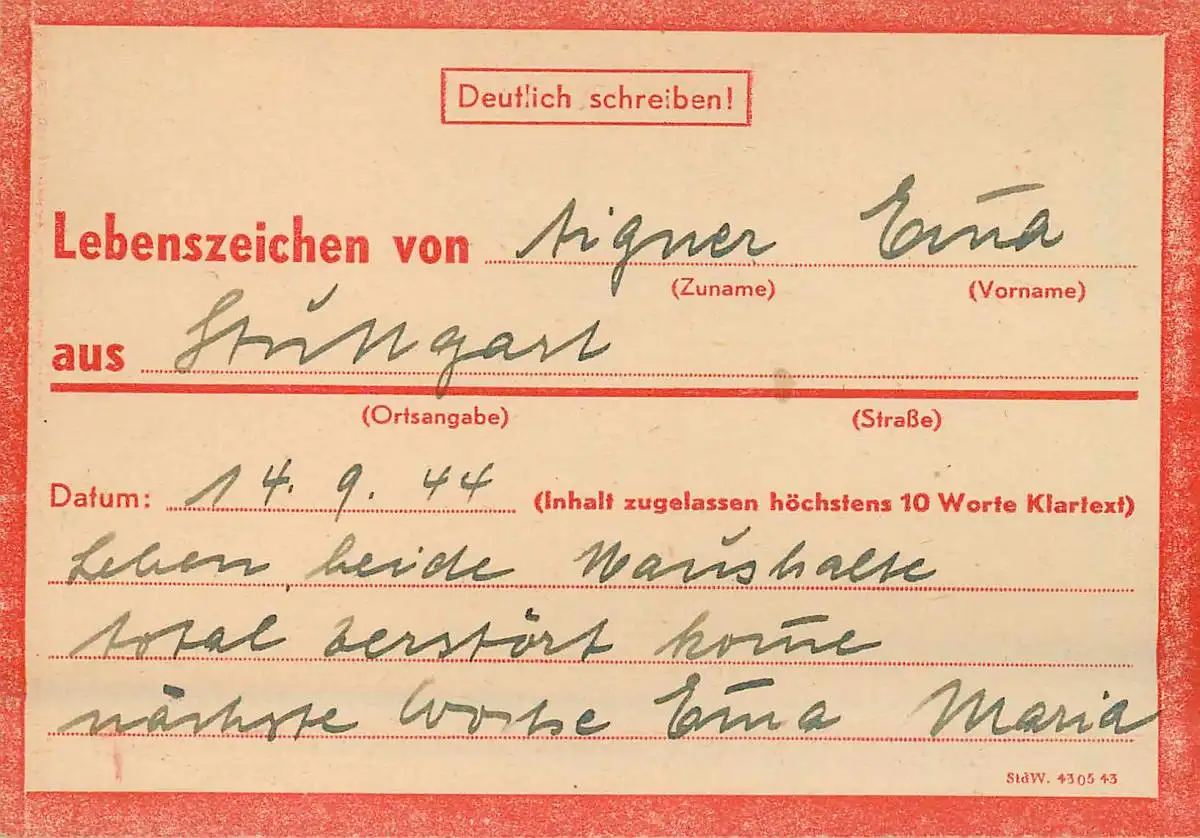 Deutlich schreiben!
Lebenszeichen von Aigner Em̅a
(Zuname) (Vorname)
aus Stuttgart
(Ortsangabe) (Straße)
Datum: 14. 9. 44 (Inhalt zugelassen höchstens 10 Worte Klartext)
Leben beide Haushalte
total zerstört kom̅e
nächste Woche Em̅a Maria
StdW. 4305 43